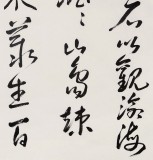 石以觀滄海
澹々山島竦
木叢生百